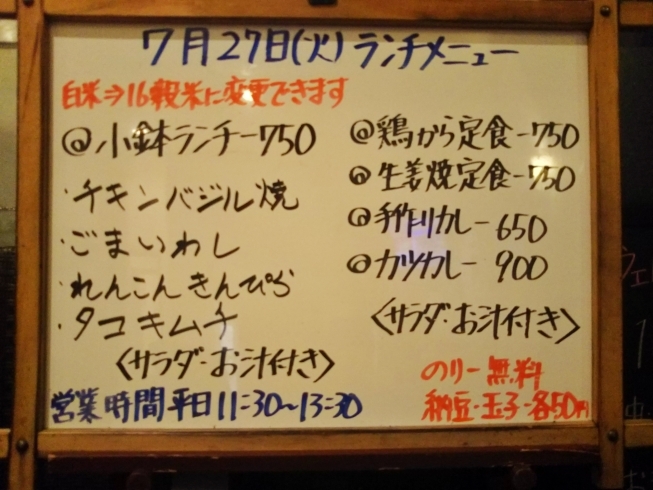 7月27日(火)ランチメニュー
白米⇒16穀米に変更できます
@小鉢ランチー750
・チキンバジル焼
・ごまいわし
・れんこんきんぴら
・タコキムチ
〈サラダ・お汁付き〉
@鶏から定食-750
@生姜焼定食-750
@手作りカレー650
@カツカレー900
〈サラダ・お汁付き〉
のりー無料
納豆・玉子-各50円
営業時間平日11:30~13:30